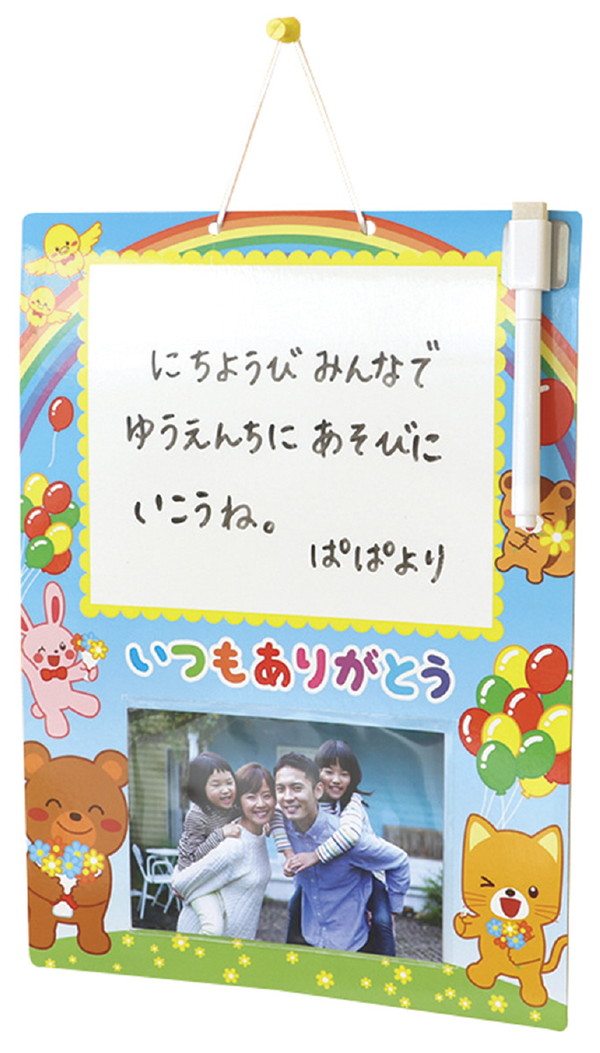 にちようび みんなで
ゆうえんちに あそびに
いこうね。
ぱぱより
いつもありがとう